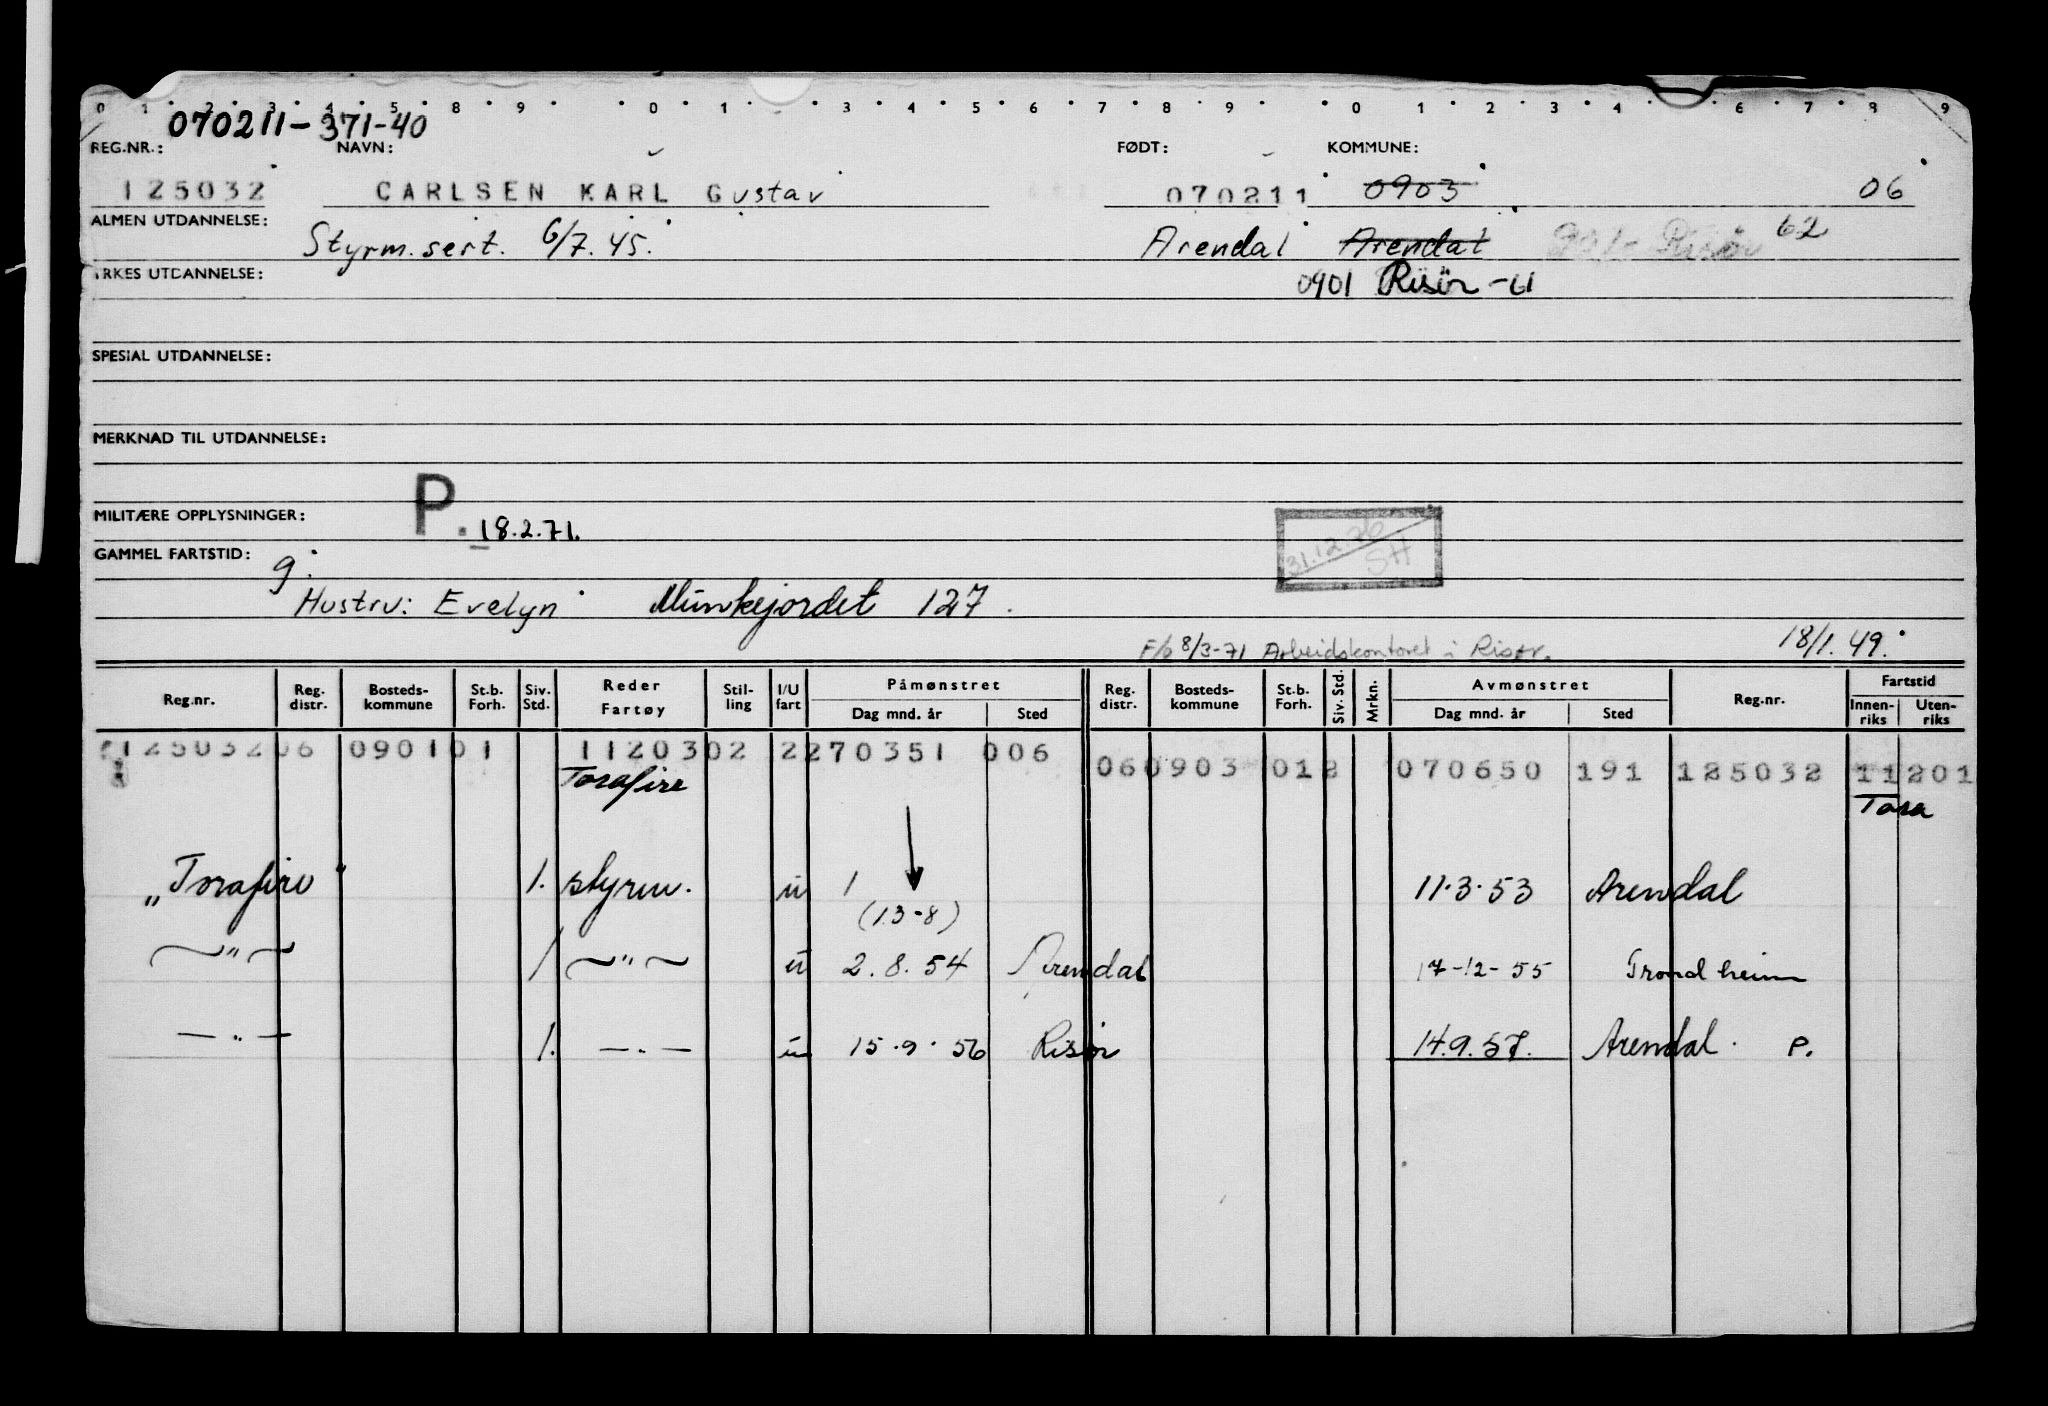 0 1 2 3 4 5 8 9 0 1 3 4 5 6 7 8 9 0 1 2 3 4 6 7 8 9
070211-371-40
REG.NR.: NAVN: FØDT: KOMMUNE:
125032 CARLSEN KARL Gustav 070211 0903 06
ALMEN UTDANNELSE: Styrm.sert. 6/7.45. Arendal Arendal Risør 62
YRKES UTDANNELSE: 0901 Risör -U
SPESIAL UTDANNELSE:
MERKNAD TIL UTDANNELSE:
MILITÆRE OPPLYSNINGER: P. 18.2.71.
31.12.76 SH
GAMMEL FARTSTID: g.
Hustru: Evelyn Munkejordet 127.
F/b 8/3-71 Arbeidskontoret i Risør. 18/1.49.
Reg.nr. Reg. distr. Bosteds- kommune St.b. Forh. Siv. Std. Reder Fartøy Stil- ling I/U fart Påmønstret Dag mnd. år Sted Reg. distr. Bosteds- kommune St.b. Forh. Siv. Std. Mrkn. Avmønstret Dag mnd. år Sted Reg.nr. Fartstid Innen- riks Uten- riks
125032 06 0901 01 1120302 2270351 006 06 0903 012 070650 191 125032 11201
Torafire Tora
"Torafire" 1. styrm. u 1 11.3.53 Arendal
(13-8)
—"— 1 —"— u 2.8.54 Arendal 17-12-55 Trondheim
—"— 1. —"— u 15.9.56 Risør 14.9.57. Arendal. P.